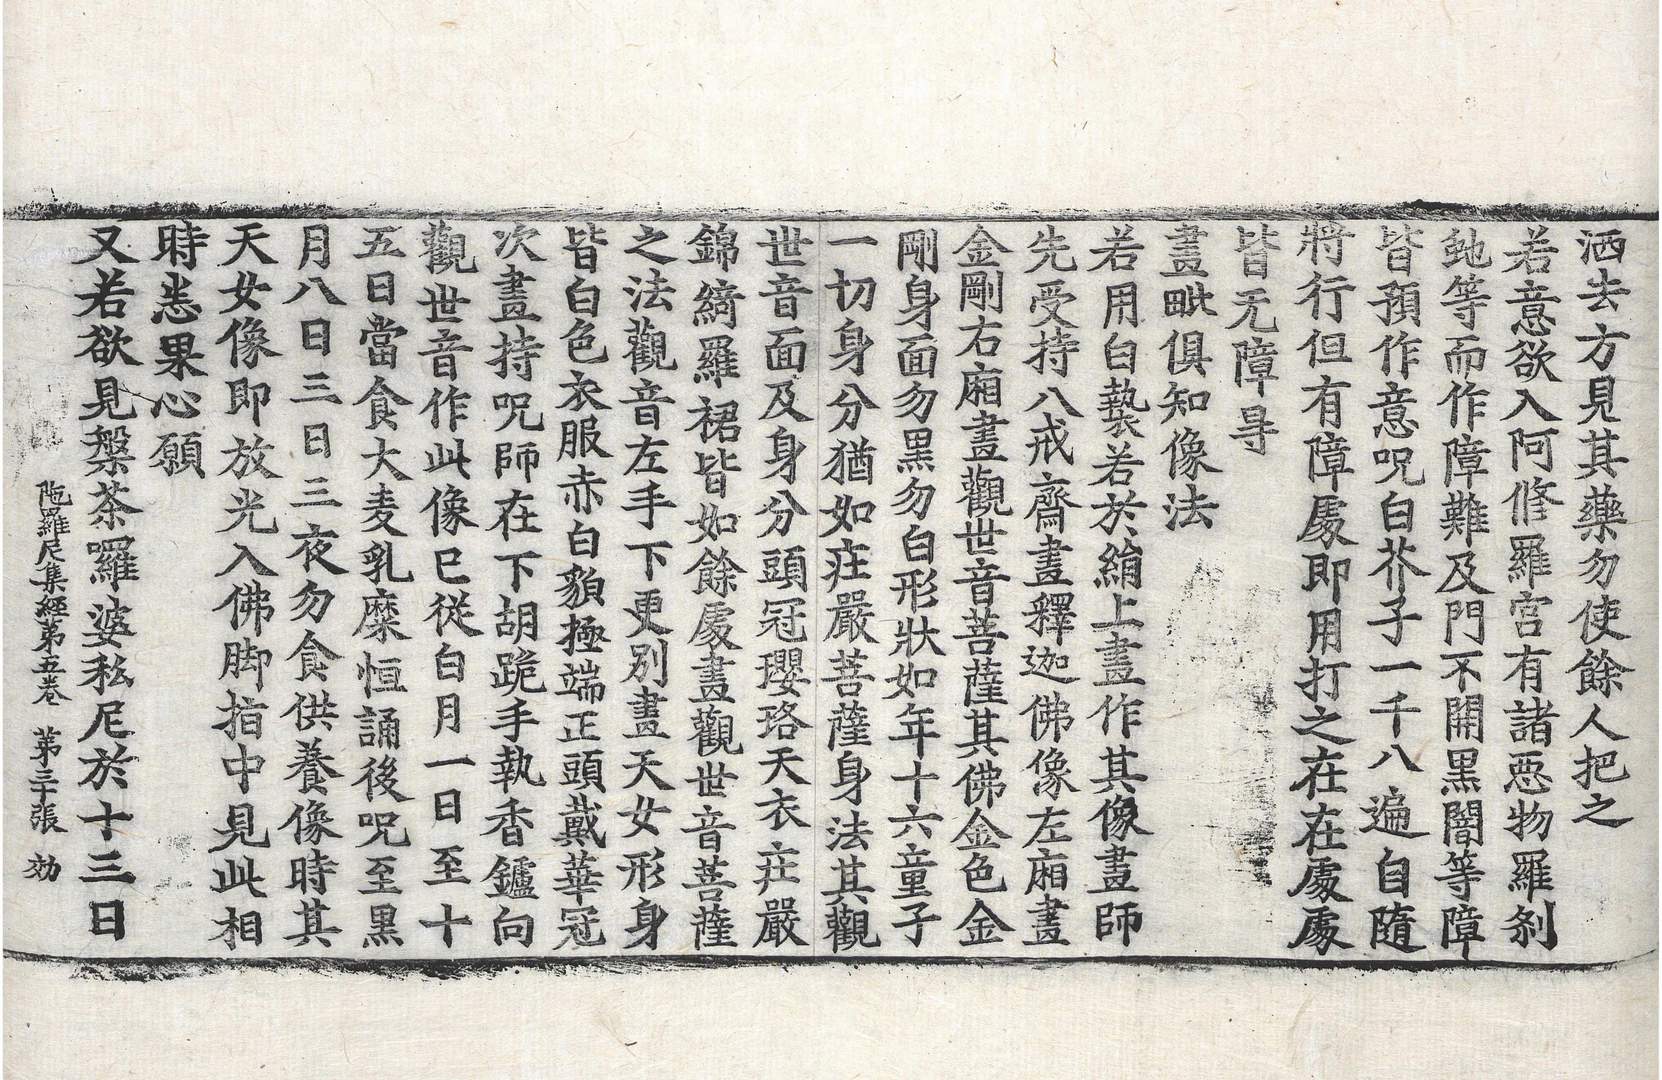 洒去方見其藥勿使餘人把之
若意欲入阿修羅宮有諸惡物羅刹
虵等而作障難及門不開黑闇等障
皆預作意呪白芥子一千八遍自隨
將行但有障處即用打之在在處處
皆无障㝵
畫毗俱知像法
若用白㲲若於絹上畫作其像畫師
先受持八戒齋畫釋迦佛像左廂畫
金剛右廂畫觀世音菩薩其佛金色金
剛身面勿黑勿白形狀如年十六童子
一切身分猶如莊嚴菩薩身法其觀
世音面及身分頭冠瓔珞天衣莊嚴
錦綺羅裙皆如餘處畫觀世音菩薩
之法觀音左手下更別畫天女形身
皆白色衣服赤白貌極端正頭戴華冠
次畫持呪師在下胡跪手執香鑪向
觀世音作此像已從白月一日至十
五日當食大麦乳糜恒誦後呪至黑
月八日三日三夜勿食供養像時其
天女像即放光入佛脚指中見此相
時悉果心願
又若欲見槃茶囉婆私尼於十三日
陁羅尼集經第五卷 第三十張 効